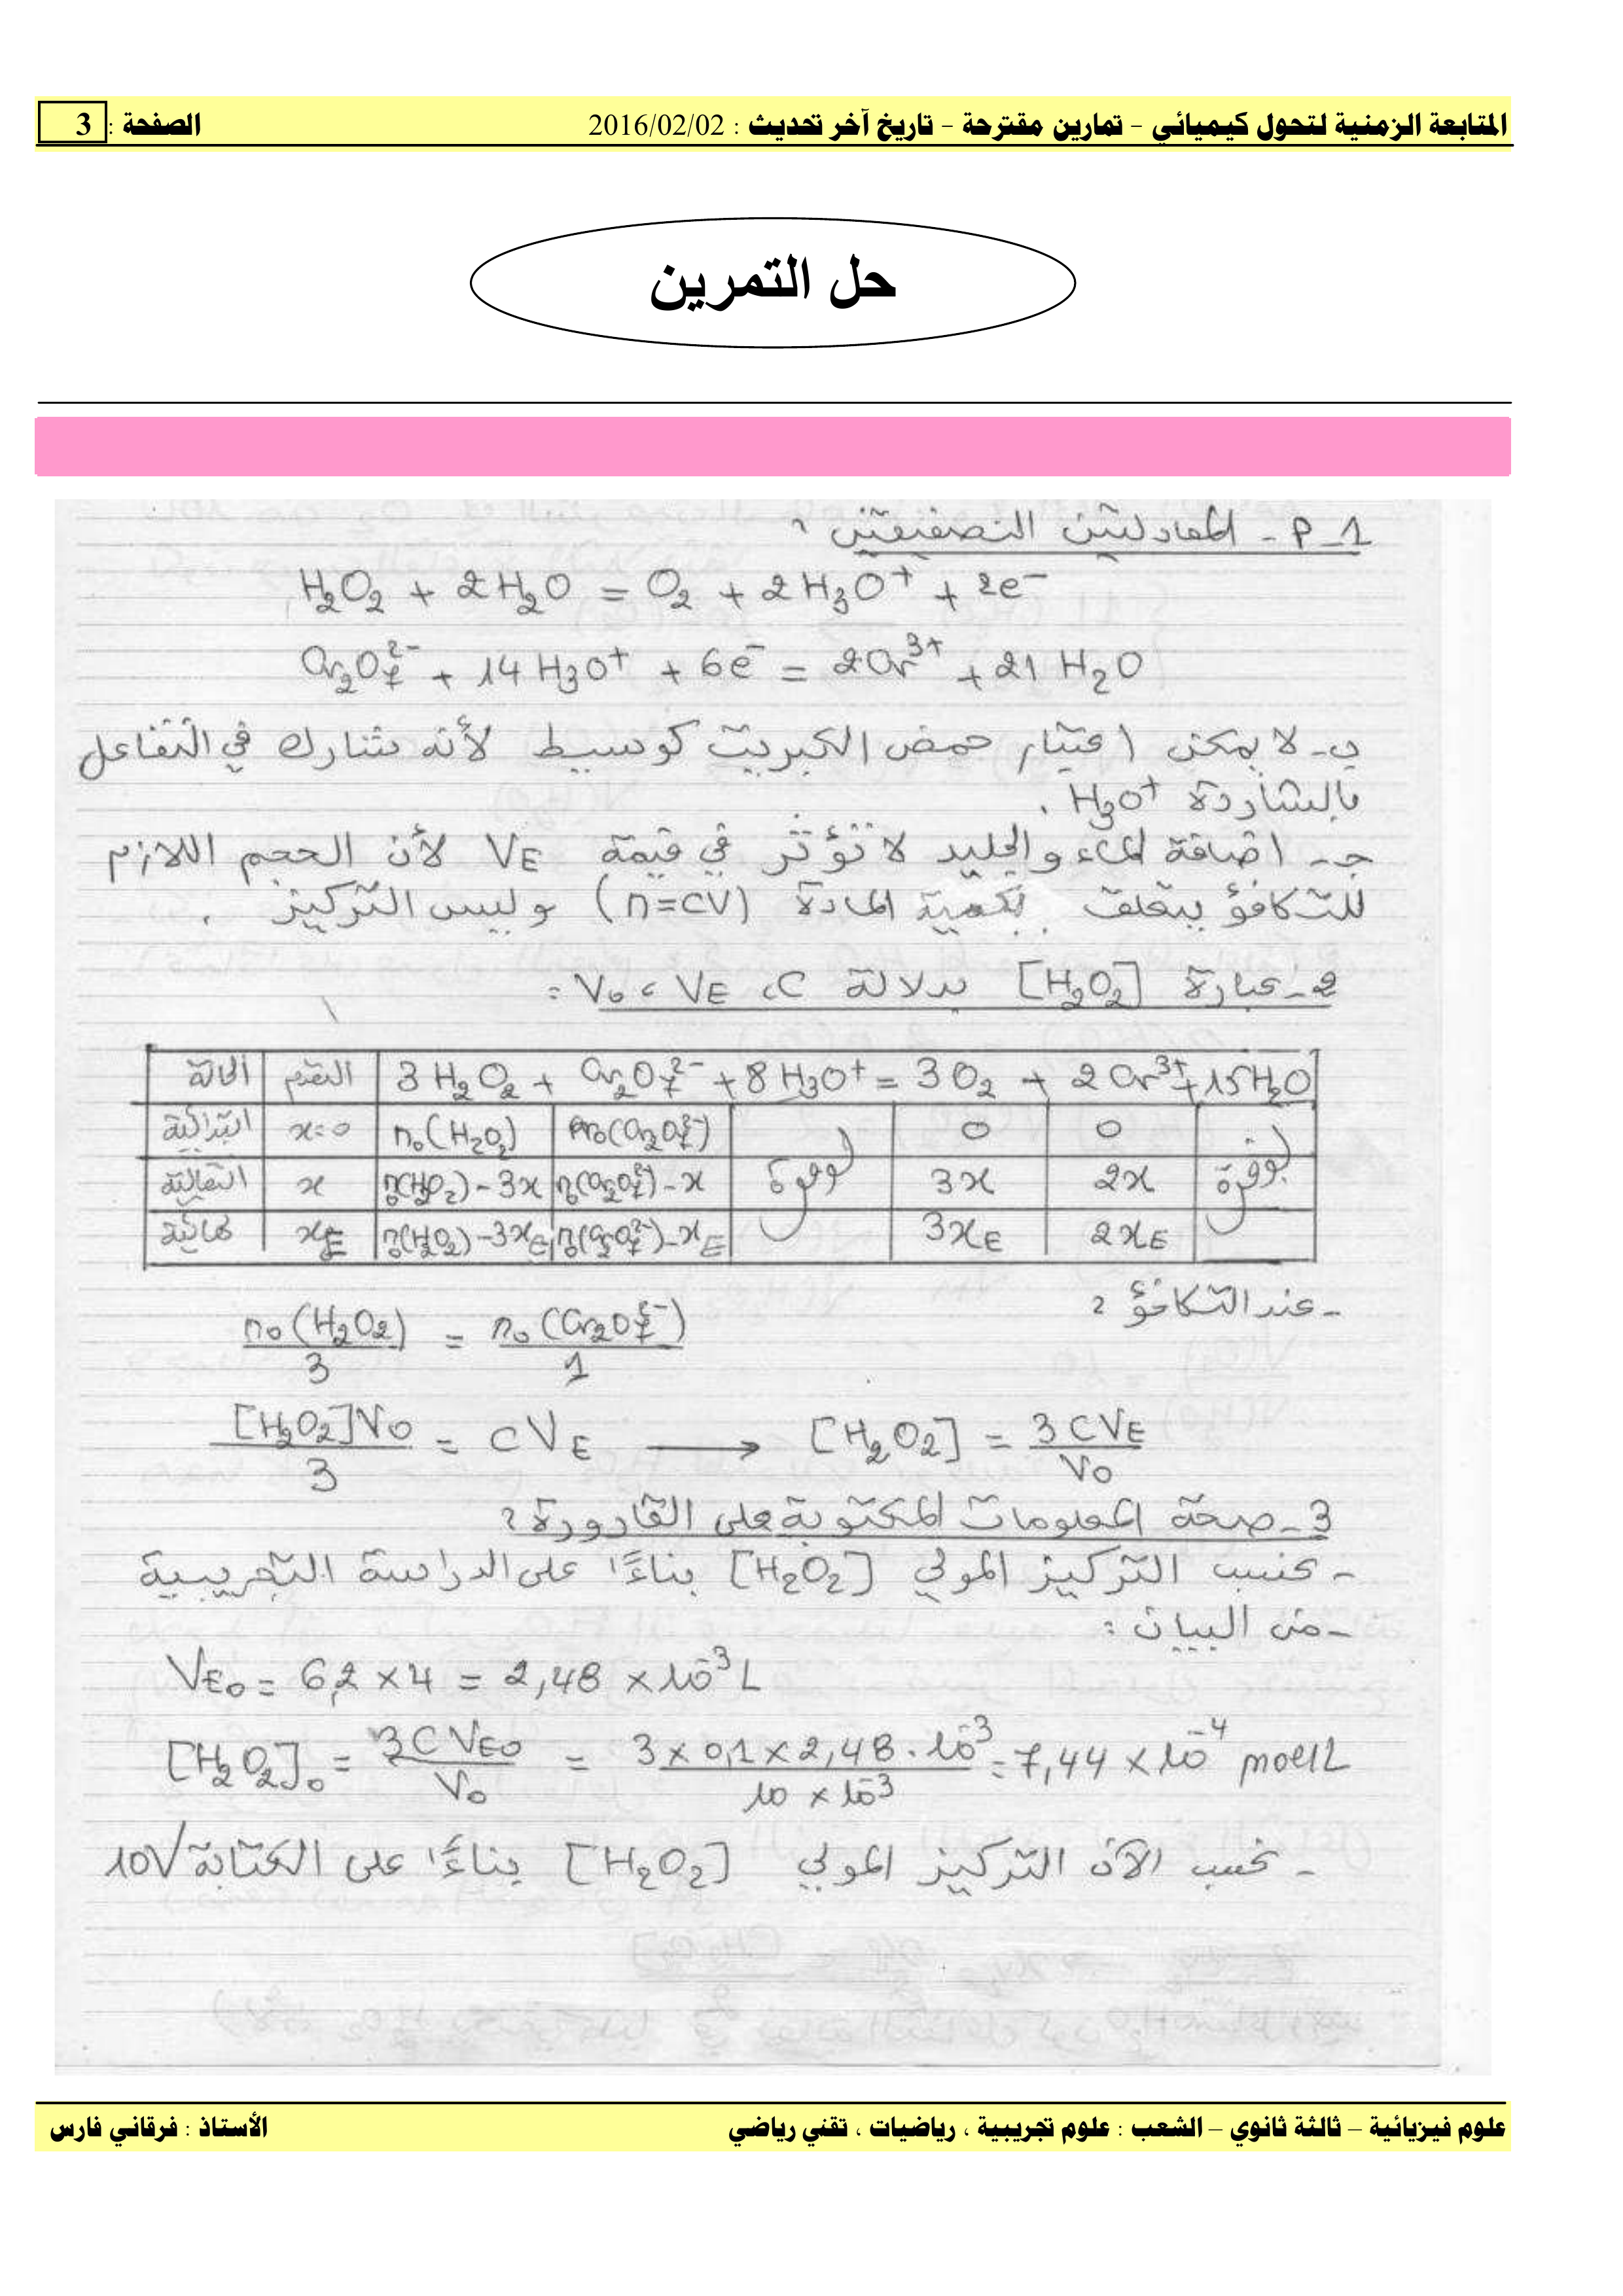 المتابعة الزمنية لتحول كيميائي – تمارين مقترحة – تاريخ آخر تحديث : 2016/02/02 الصفحة : 3
حل التمرين
1_P - المعادلتين النصفيتين :
H₂O₂ + 2H₂O = O₂ + 2H₃O⁺ + 2e⁻
Cr₂O₇²⁻ + 14H₃O⁺ + 6e⁻ = 2Cr³⁺ + 21H₂O
ب- لا يمكن اعتبار حمض الكبريت كوسيط لأنه شارك في التفاعل
بالشاردة H₃O⁺ .
جـ- اضافة الماء والجليد لا تؤثر في قيمة VE لأن الحجم اللازم
للتكافؤ يتعلق بكمية المادة (n=CV) وليس التركيز .
2- عبارة [H₂O₂] بدلالة C ، VE ، V₀ :
الحالة | التقدم | 3H₂O₂ + Cr₂O₇²⁻ + 8H₃O⁺ = 3O₂ + 2Cr³⁺ + 15H₂O
ابتدائية | x=0 | n₀(H₂O₂) | n₀(Cr₂O₇²⁻) | بوفرة | 0 | 0 | بوفرة
انتقالية | x | n₀(H₂O₂)-3x | n₀(Cr₂O₇²⁻)-x | 3x | 2x
نهائية | xE | n₀(H₂O₂)-3xE | n₀(Cr₂O₇²⁻)-xE | 3xE | 2xE
- عند التكافؤ :
n₀(H₂O₂)/3 = n₀(Cr₂O₇²⁻)/1
[H₂O₂]V₀/3 = CVE → [H₂O₂] = 3CVE/V₀
3- صحة المعلومات المكتوبة على القارورة :
- نحسب التركيز المولي [H₂O₂] بناءًا على الدراسة التجريبية
- من البيان :
VE₀ = 6,2 × 4 = 2,48 × 10⁻³ L
[H₂O₂]₀ = 3CVE₀/V₀ = 3 × 0,1 × 2,48 . 10⁻³/10 × 10⁻³ = 7,44 × 10⁻⁴ mol/L
- نحسب الآن التركيز المولي [H₂O₂] بناءًا على الكتابة 10V
علوم فيزيائية – ثالثة ثانوي – الشعب : علوم تجريبية ، رياضيات ، تقني رياضي الأستاذ : فرقاني فارس